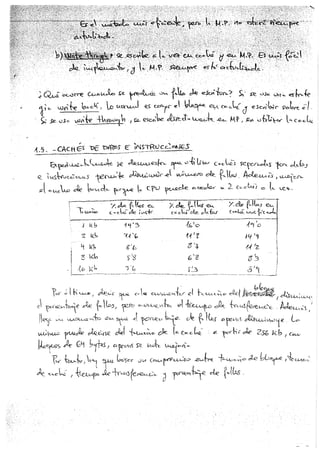 Es el método más eficiente, pero la M.P. no estará siempre
actualizada.
b) Write through: se escribe a la vez en caché y en M.P. El más fácil
de implementar, y la M.P. siempre está actualizada.
¿Qué ocurre cuando se produce un fallo de escritura? Si se usa una estrate
gia write back. Lo normal es copiar el bloque en caché y escribir sobre él.
Si se usa write through, se escribe directamente en MP, sin utilizar la caché
1.5. - CACHÉS DE DATOS E INSTRUCCIONES
Experimentalmente se demuestra que utilizar cachés separadas para datos
e instrucciones permite disminuir el número de fallos. Además, mejora
el ancho de banda porque la CPU puede acceder a 2 cachés a la vez.
Tamaño % de fallos en caché de instr % de fallos en caché de datos % de fallos en caché unificada
1 kb
2 kb 11'2
4 kb 8'6
8 kb 5'8
16 kb 3'6
Por último, decir que si aumenta el tamaño del bloque, disminuye
el porcentaje de fallos, pero aumenta el tiempo de transferencia. Además,
llega un momento en que el porcentaje de fallos apenas disminuye. Lo
mismo puede decirse del tamaño de la caché: a partir de 256 Kb, con
bloques de 64 bytes, apenas se nota mejoría.
Por tanto, hay que buscar un compromiso entre tamaño de bloque, tamaño
de caché, tiempo de transferencia y porcentaje de fallos.